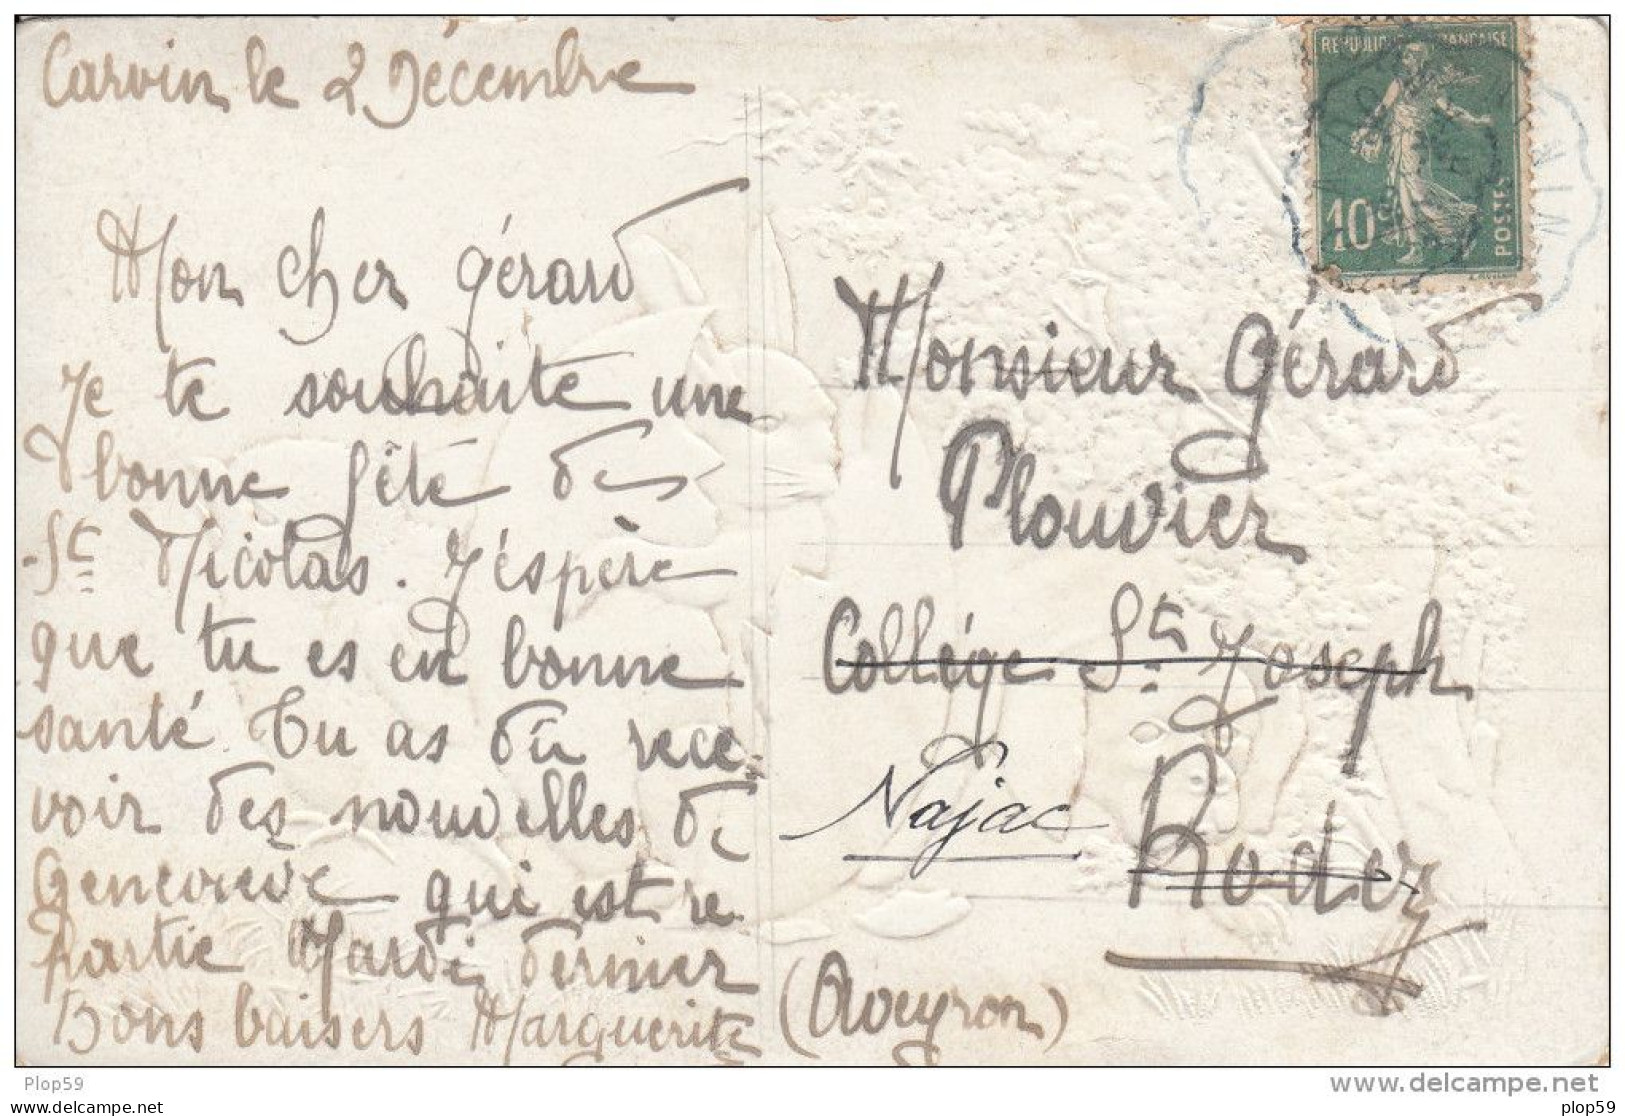 Carvin le 2 Décembre
Mon cher Gérard
Je te souhaite une
bonne fête des
St Nicolas. J'éspère
que tu es en bonne
santé Tu as dû rece-
voir des nouvelles de
Genevieve qui est re-
partie Mardi dernier
Bons baisers Marguerite
REPUBLIQUE FRANÇAISE
10c
POSTES
Monsieur Gérard
Plouvier
Collége St Joseph
Najac
Rodez
(Aveyron)
Plop59
www.delcampe.net
plop59